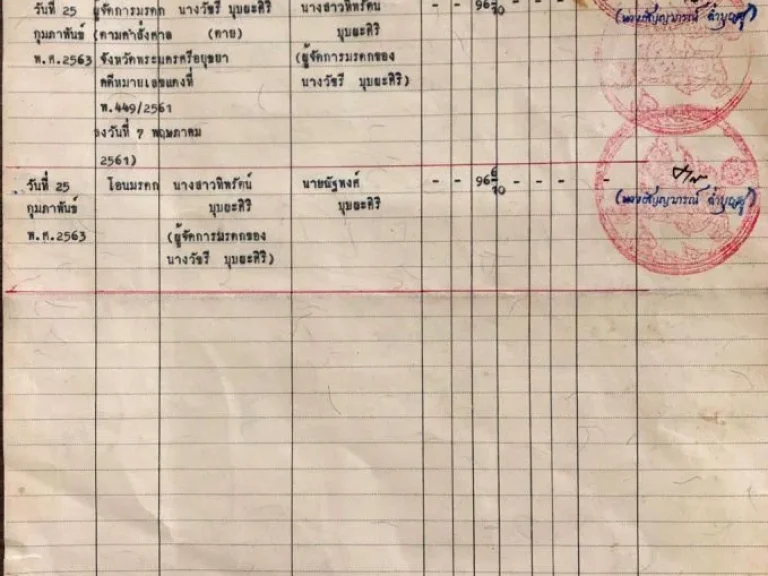 วันที่ 25 ผู้จัดการมรดก นางวัชรี บุบยะศิริ นางสาวทิพรัตน์ - - 96 6/10 - - -
กุมภาพันธ์ (ตามคำสั่งศาล (ตาย) บุบยะศิริ
พ.ศ.2563 จังหวัดพระนครศรีอยุธยา (ผู้จัดการมรดกของ
คดีหมายเลขแดงที่ นางวัชรี บุบยะศิริ)
พ.449/2561
ลงวันที่ 7 พฤษภาคม
2561)
วันที่ 25 โอนมรดก นางสาวทิพรัตน์ นายณัฐพงศ์ - - 96 6/10 - - - -
กุมภาพันธ์ บุบยะศิริ บุบยะศิริ
พ.ศ.2563 (ผู้จัดการมรดกของ
นางวัชรี บุบยะศิริ)